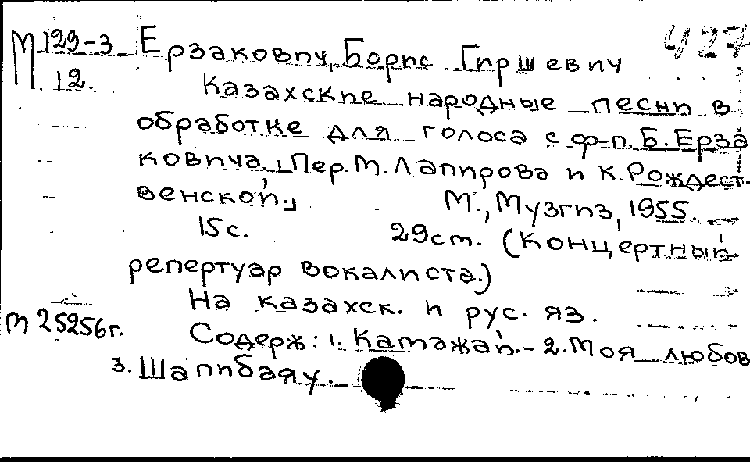 М 129-3 Ерзакович, Борис Гиршевич 427
12. Казахские народные песни в
обработке для голоса с ф-п. Б. Ерза
ковича. Пер. М. Лапирова и К. Рождест-
венской. М., Музгиз, 1955.
15с. 29см. (Концертный
репертуар вокалиста.)
На казахск. и рус. яз.
М 25256г. Содерж: 1. Камажай. - 2. Моя любов
3. Шапибаяу.